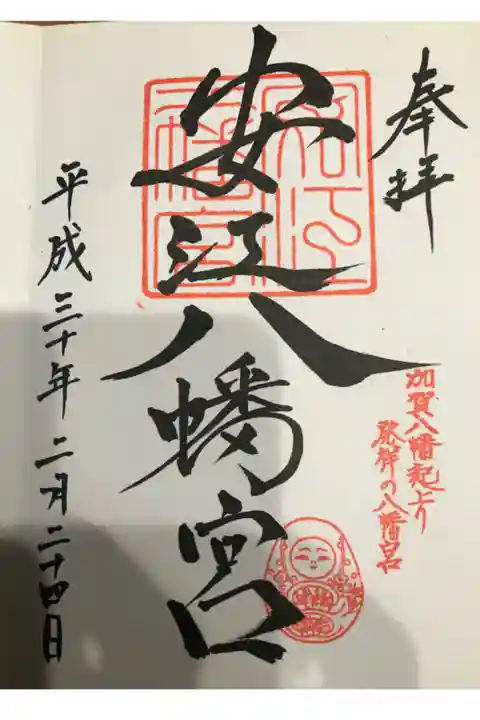 奉拝
加賀八幡起上り
発祥の八幡宮
安江八幡宮
平成三十年二月二十四日